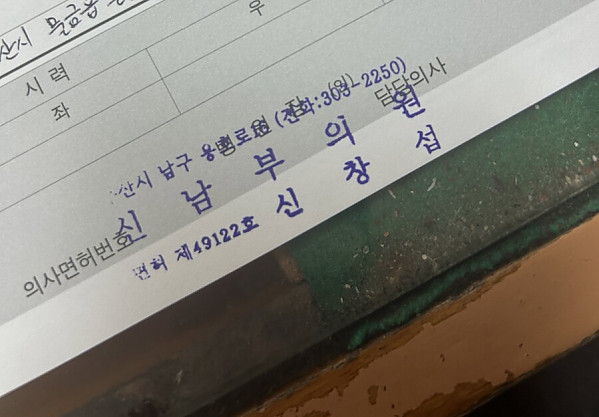 산시 물금읍
시 력
우
좌
산시 남구 용호로 (전화:303-2250)
병원 (의) 담당의사
신 남 부 의 원
의사면허번호
면허 제49122호 신 창 섭